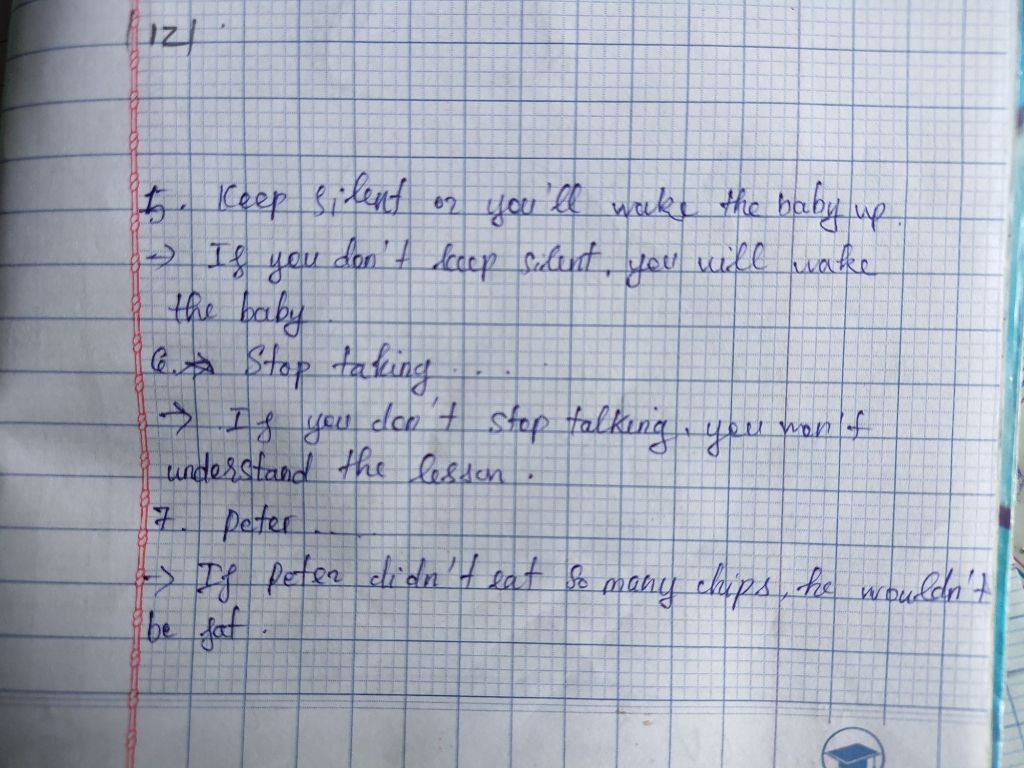 12
5. Keep silent or you'll wake the baby up.
→ If you don't keep silent, you will wake
the baby.
6. → Stop taking ....
→ If you don't stop talking, you won't
understand the lesson.
7. peter ......
→ If peter didn't eat so many chips, he wouldn't
be fat.